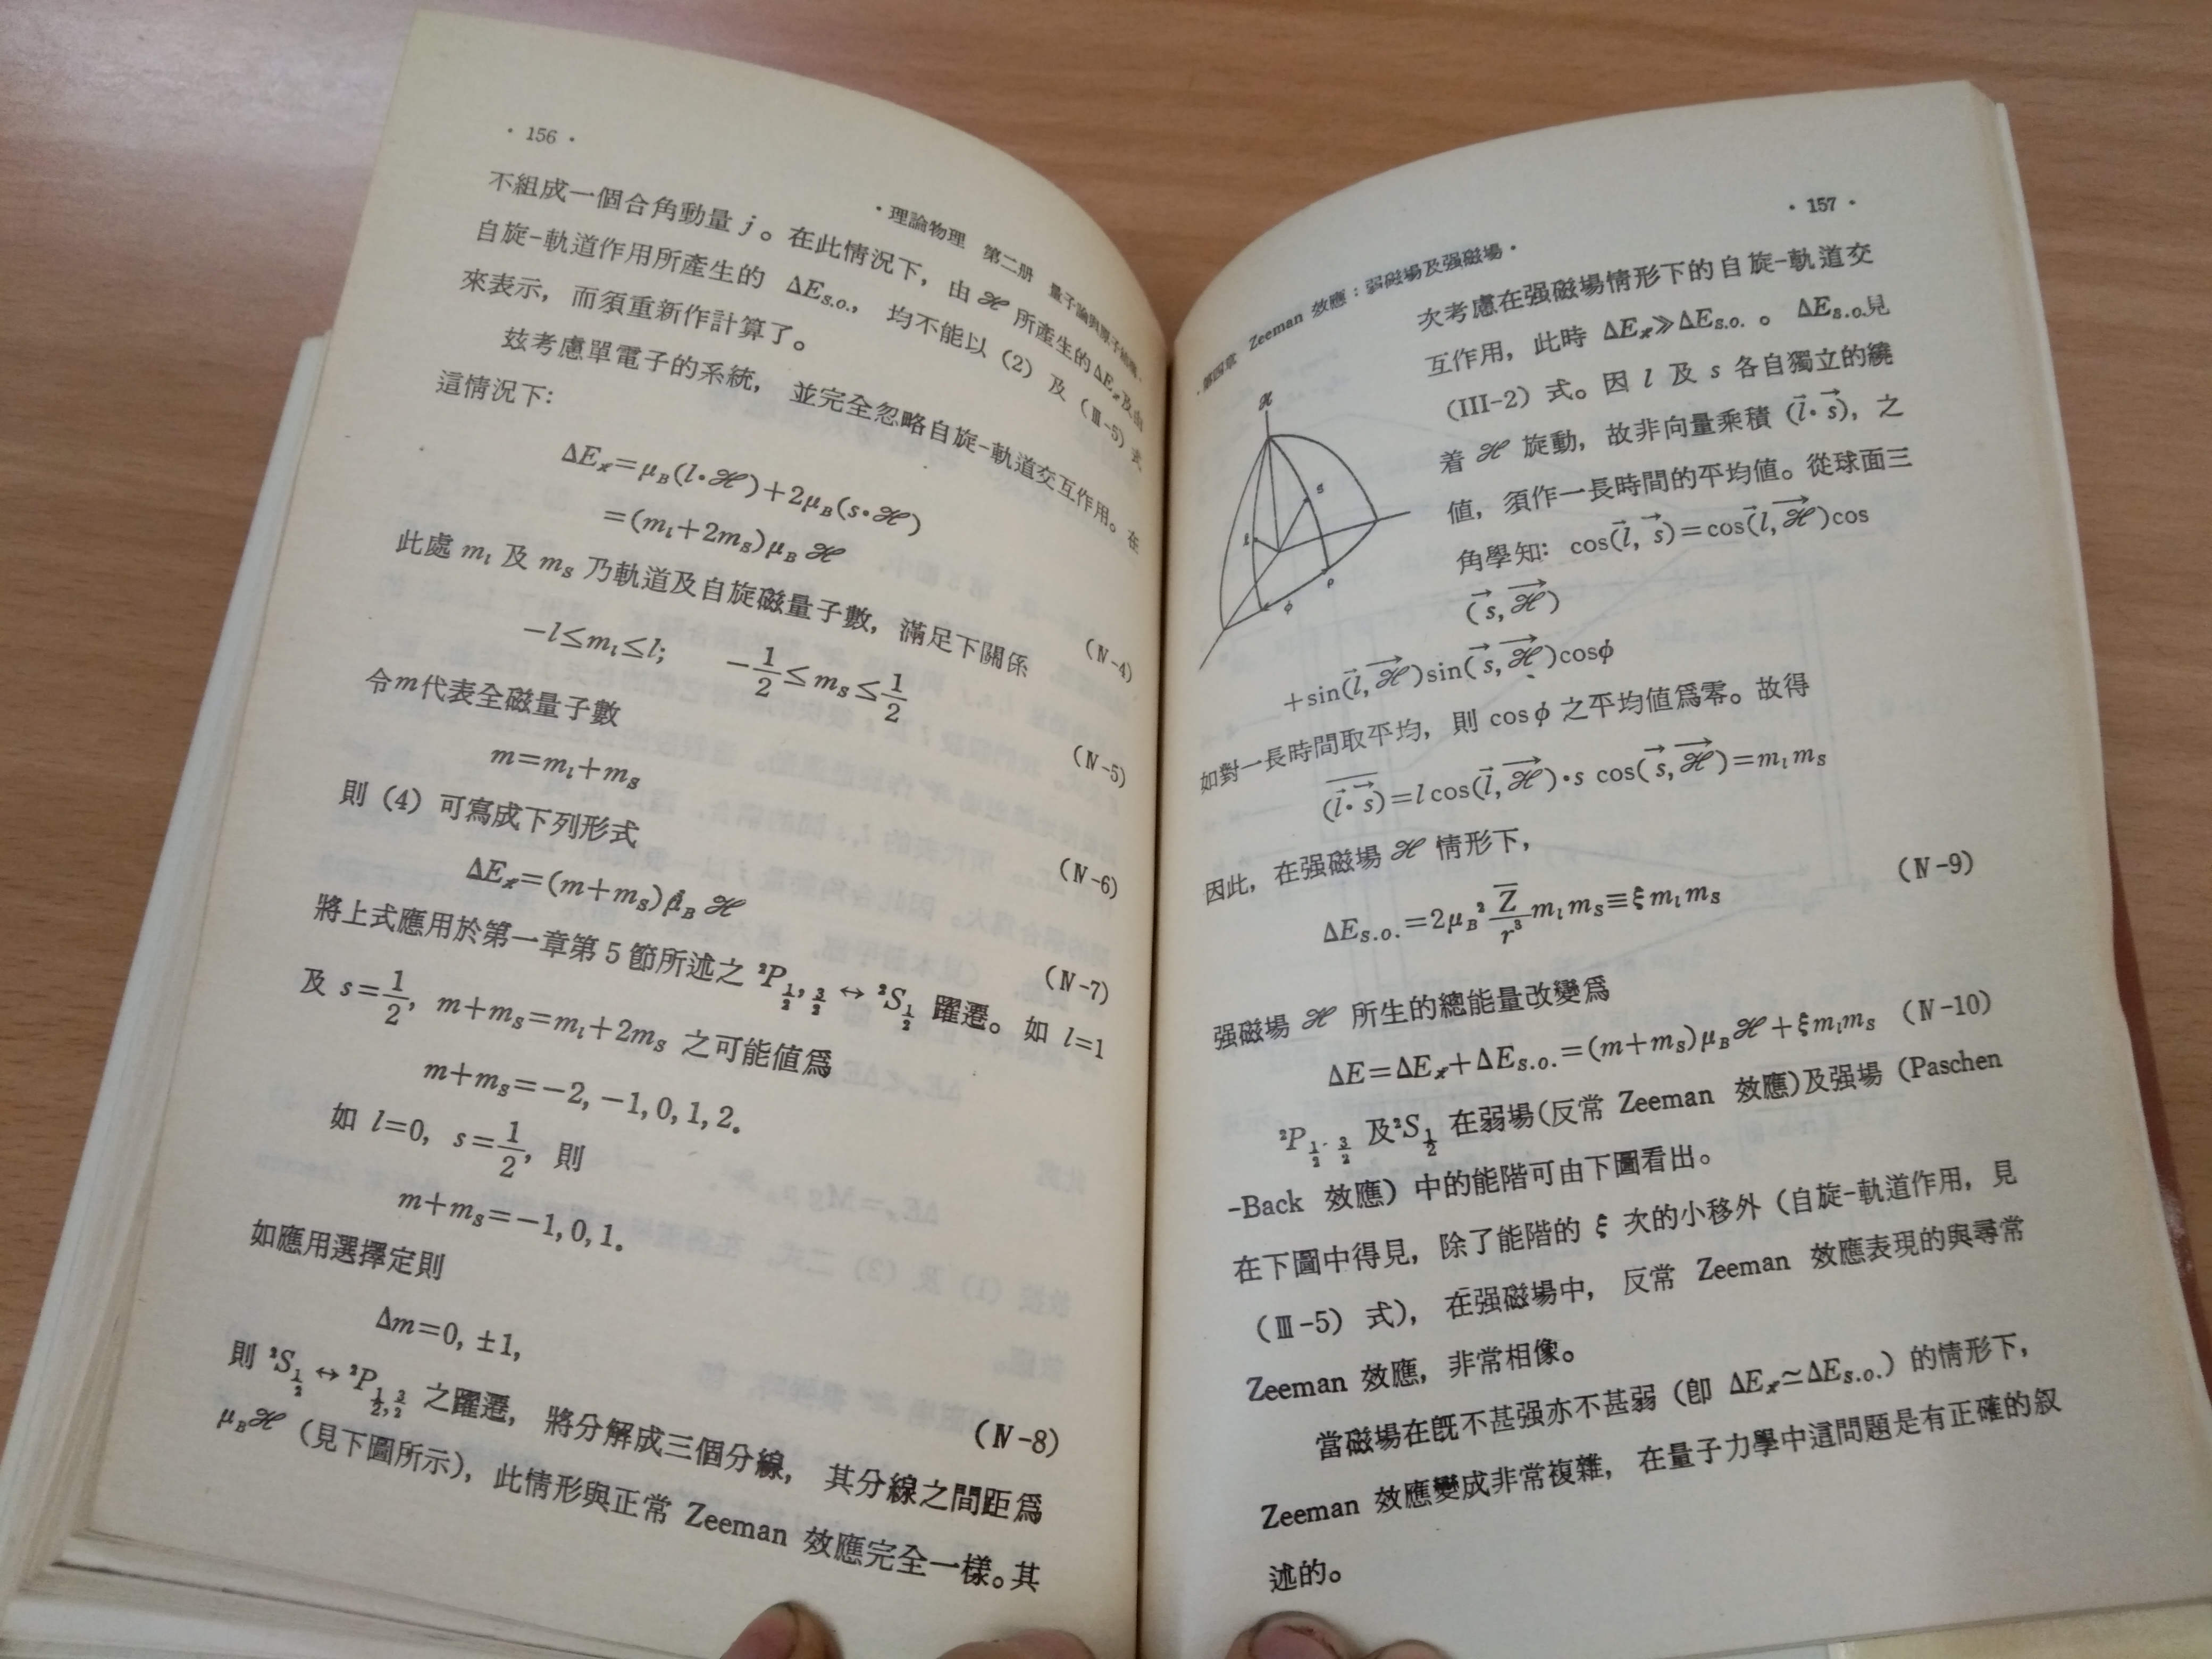 · 156 ·
· 理論物理 第二册 量子論與原子結構 ·
不組成一個合角動量 j。在此情況下，由 ℋ 所產生的 ΔEℋ 及由
自旋-軌道作用所產生的 ΔEs.o.， 均不能以 (2) 及 (Ⅲ-5) 式
來表示，而須重新作計算了。
玆考慮單電子的系統， 並完全忽略自旋-軌道交互作用。在
這情況下:
ΔEℋ=μB(l·ℋ)+2μB(s·ℋ)
=(ml+2ms)μBℋ (Ⅳ-4)
此處 ml 及 ms 乃軌道及自旋磁量子數，滿足下關係
-l≤ml≤l; -1/2≤ms≤1/2 (Ⅳ-5)
令m代表全磁量子數
m=ml+ms (Ⅳ-6)
則 (4) 可寫成下列形式
ΔEℋ=(m+ms)μBℋ (Ⅳ-7)
將上式應用於第一章第 5 節所述之 ²P1/2, 3/2 ↔ ²S1/2 躍遷。如 l=1
及 s=1/2, m+ms=ml+2ms 之可能值爲
m+ms=-2, -1, 0, 1, 2。
如 l=0, s=1/2, 則
m+ms=-1, 0, 1。
如應用選擇定則
Δm=0, ±1, (Ⅳ-8)
則 ²S1/2 ↔ ²P1/2, 3/2 之躍遷， 將分解成三個分線， 其分線之間距爲
μBℋ (見下圖所示)，此情形與正常 Zeeman 效應完全一樣。其
· 157 ·
· 第四章 Zeeman 效應：弱磁場及强磁場 ·
次考慮在强磁場情形下的自旋-軌道交
互作用，此時 ΔEℋ≫ΔEs.o.。 ΔEs.o.見
(III-2) 式。因 l 及 s 各自獨立的繞
着 ℋ 旋動，故非向量乘積 (l⃗·s⃗)，之
值，須作一長時間的平均值。從球面三
角學知: cos(l⃗, s⃗)=cos(l⃗, ℋ⃗)cos
(s⃗, ℋ⃗)
+sin(l⃗, ℋ⃗)sin(s⃗, ℋ⃗)cosϕ
ℋ
s
l
ρ
ϕ
如對一長時間取平均，則 cosϕ 之平均值爲零。故得
\overline{(l⃗·s⃗)}=l cos(l⃗, ℋ⃗)·s cos(s⃗, ℋ⃗)=ml ms
因此，在强磁場 ℋ 情形下，
ΔEs.o.=2μB² \overline{Z}/r³ ml ms≡ξ ml ms (Ⅳ-9)
强磁場 ℋ 所生的總能量改變爲
ΔE=ΔEℋ+ΔEs.o.=(m+ms)μBℋ+ξmlms (Ⅳ-10)
²P1/2· 3/2 及²S1/2 在弱場(反常 Zeeman 效應)及强場 (Paschen
-Back 效應) 中的能階可由下圖看出。
在下圖中得見，除了能階的 ξ 次的小移外 (自旋-軌道作用，見
(Ⅲ-5) 式)， 在强磁場中， 反常 Zeeman 效應表現的與尋常
Zeeman 效應，非常相像。
當磁場在旣不甚强亦不甚弱 (卽 ΔEℋ≃ΔEs.o.) 的情形下，
Zeeman 效應變成非常複雜， 在量子力學中這問題是有正確的叙
述的。